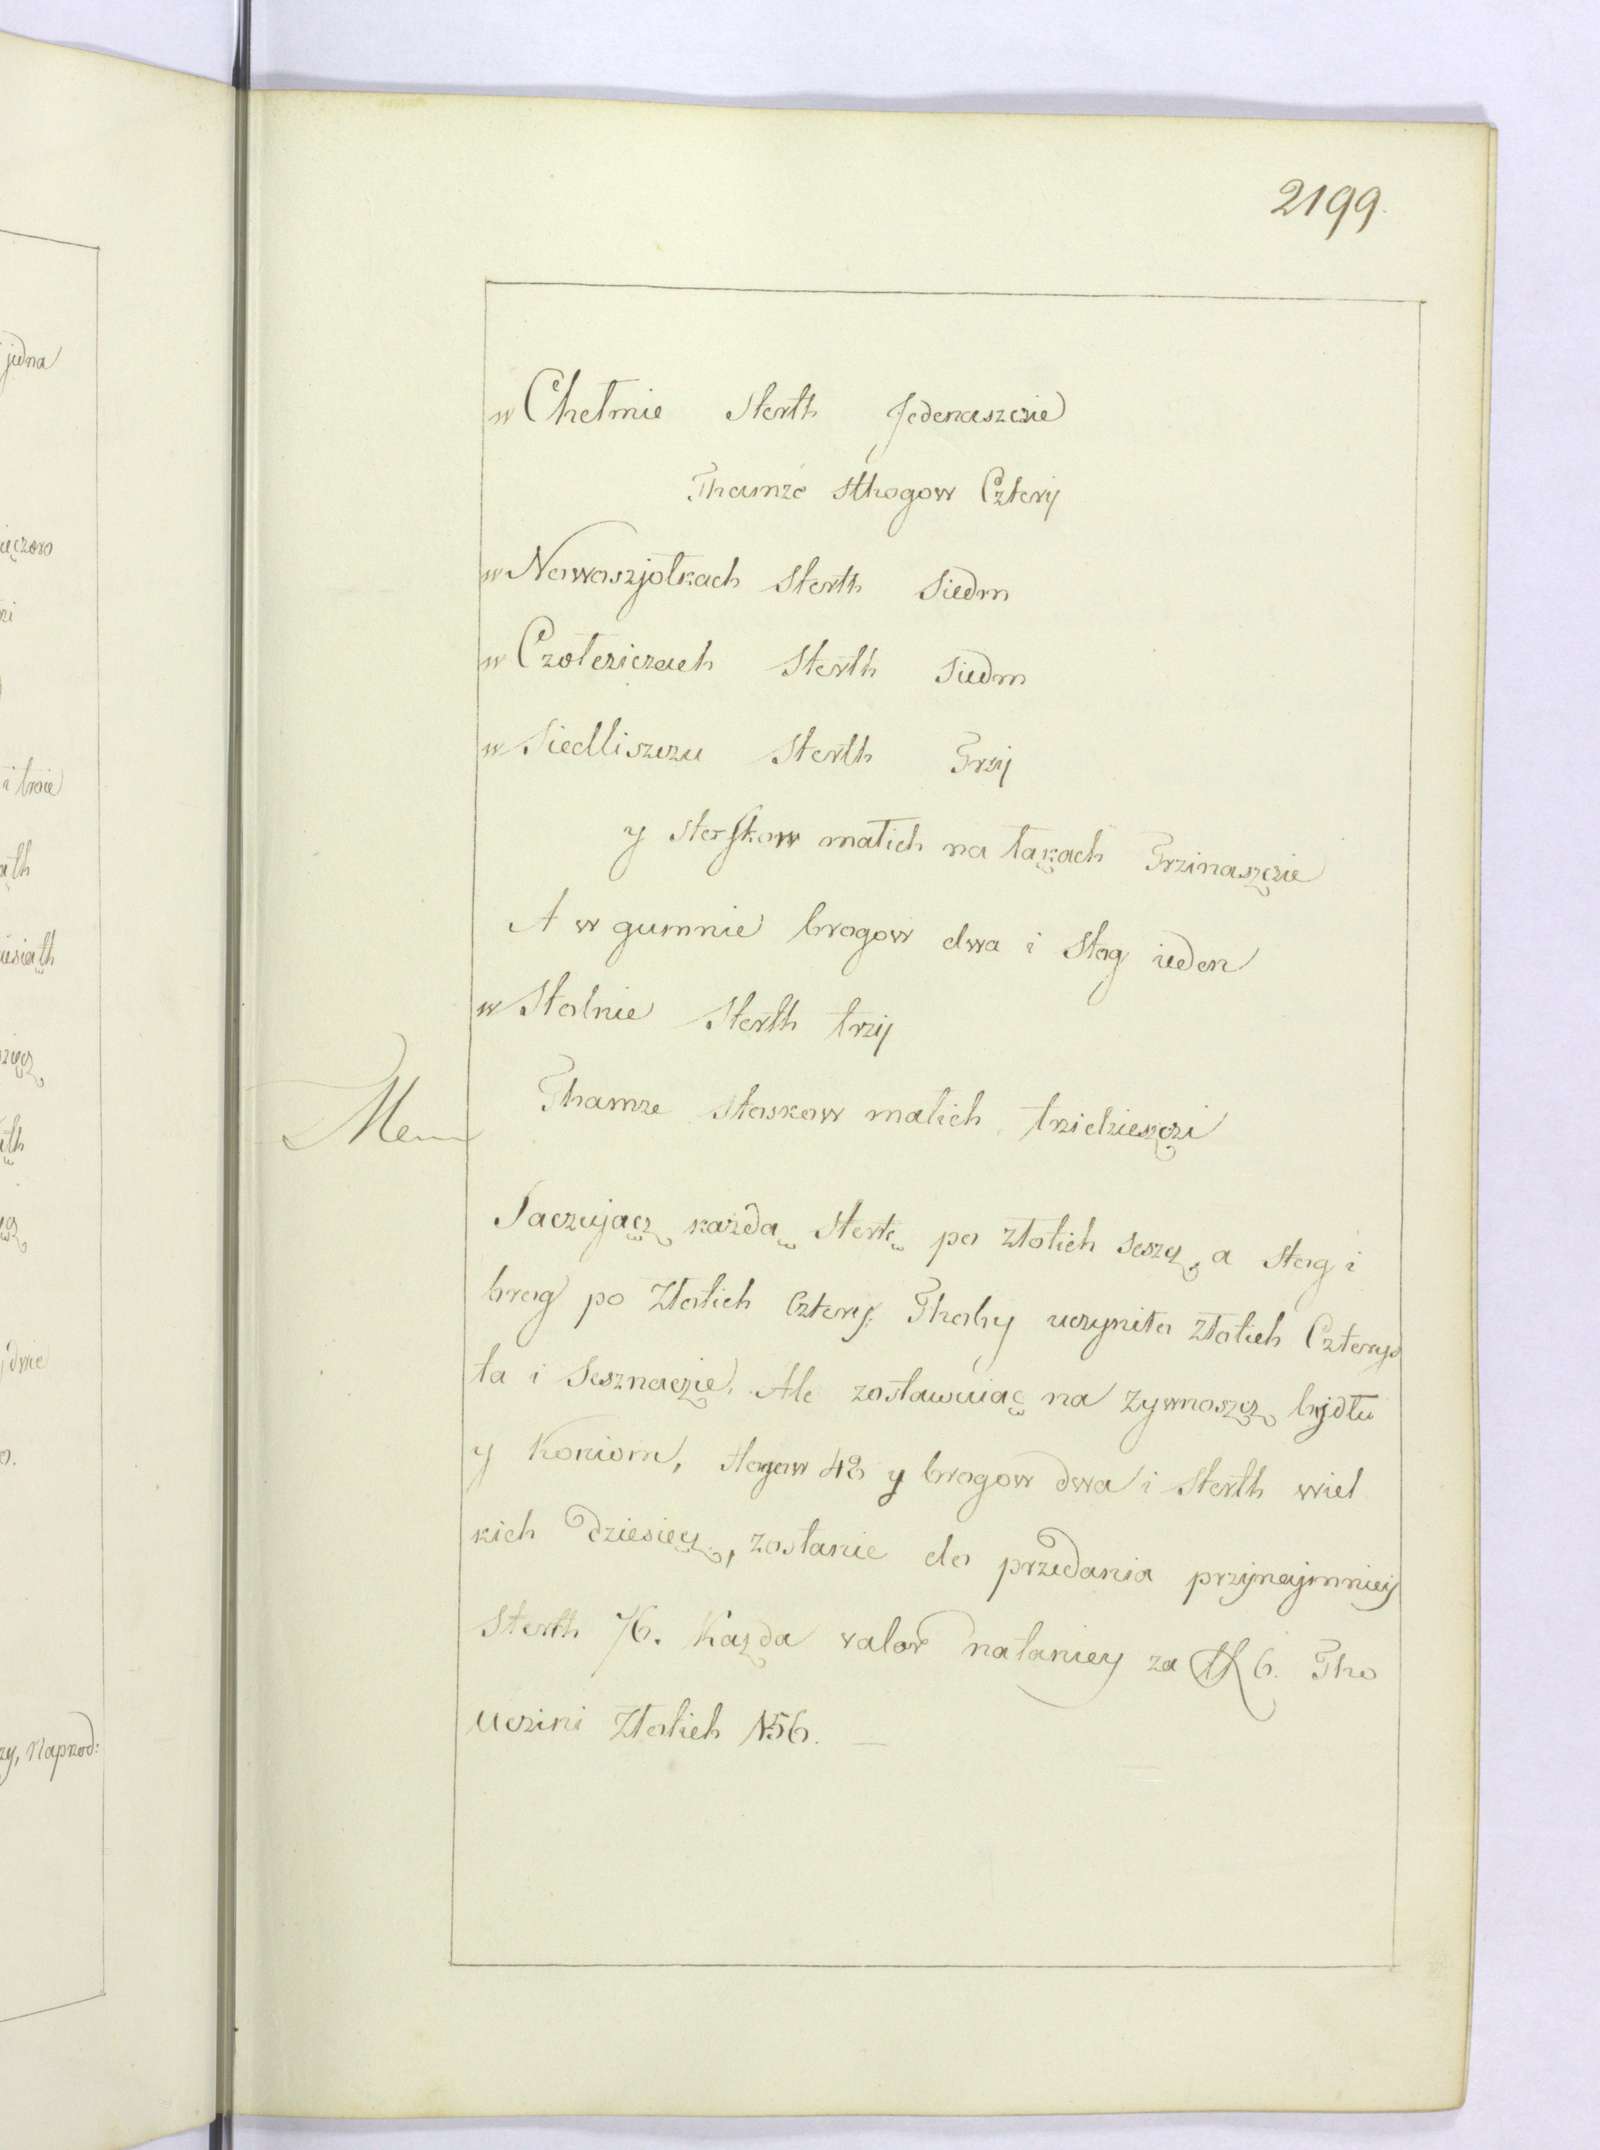 2199.
w Chełmie sterth Jedenaszczie
Thamze sthogow Cztery
w Nowoszjołkach sterth siedm
w Czołcziczach sterth siedm
w Siedliszczu sterth Trzy
y stoszkow małich na łąkach Trzinaszczie
A w gumnie brogow dwa i stog ieden
w Stolnie sterth trzy
Thamze stoskow małich trzidzieszczi
Mem
Saczującz każdą stertę po złotich sescz, a stog i
brog po złotich cztery. Thoby uczyniło złotich Czterys
ta i sesznaczie. Ale zostawuiąc na żywnoszcz bydłu
y koniom, stogow 48 y brogow dwa i sterth wiel
kich dziesięcz, zostanie do przedania przynajmniey
sterth 76. Każda valor nataniey za fl 6. Tho
uczini złotich 456.
jedna
i troie
dwie
zy, Naprzod: